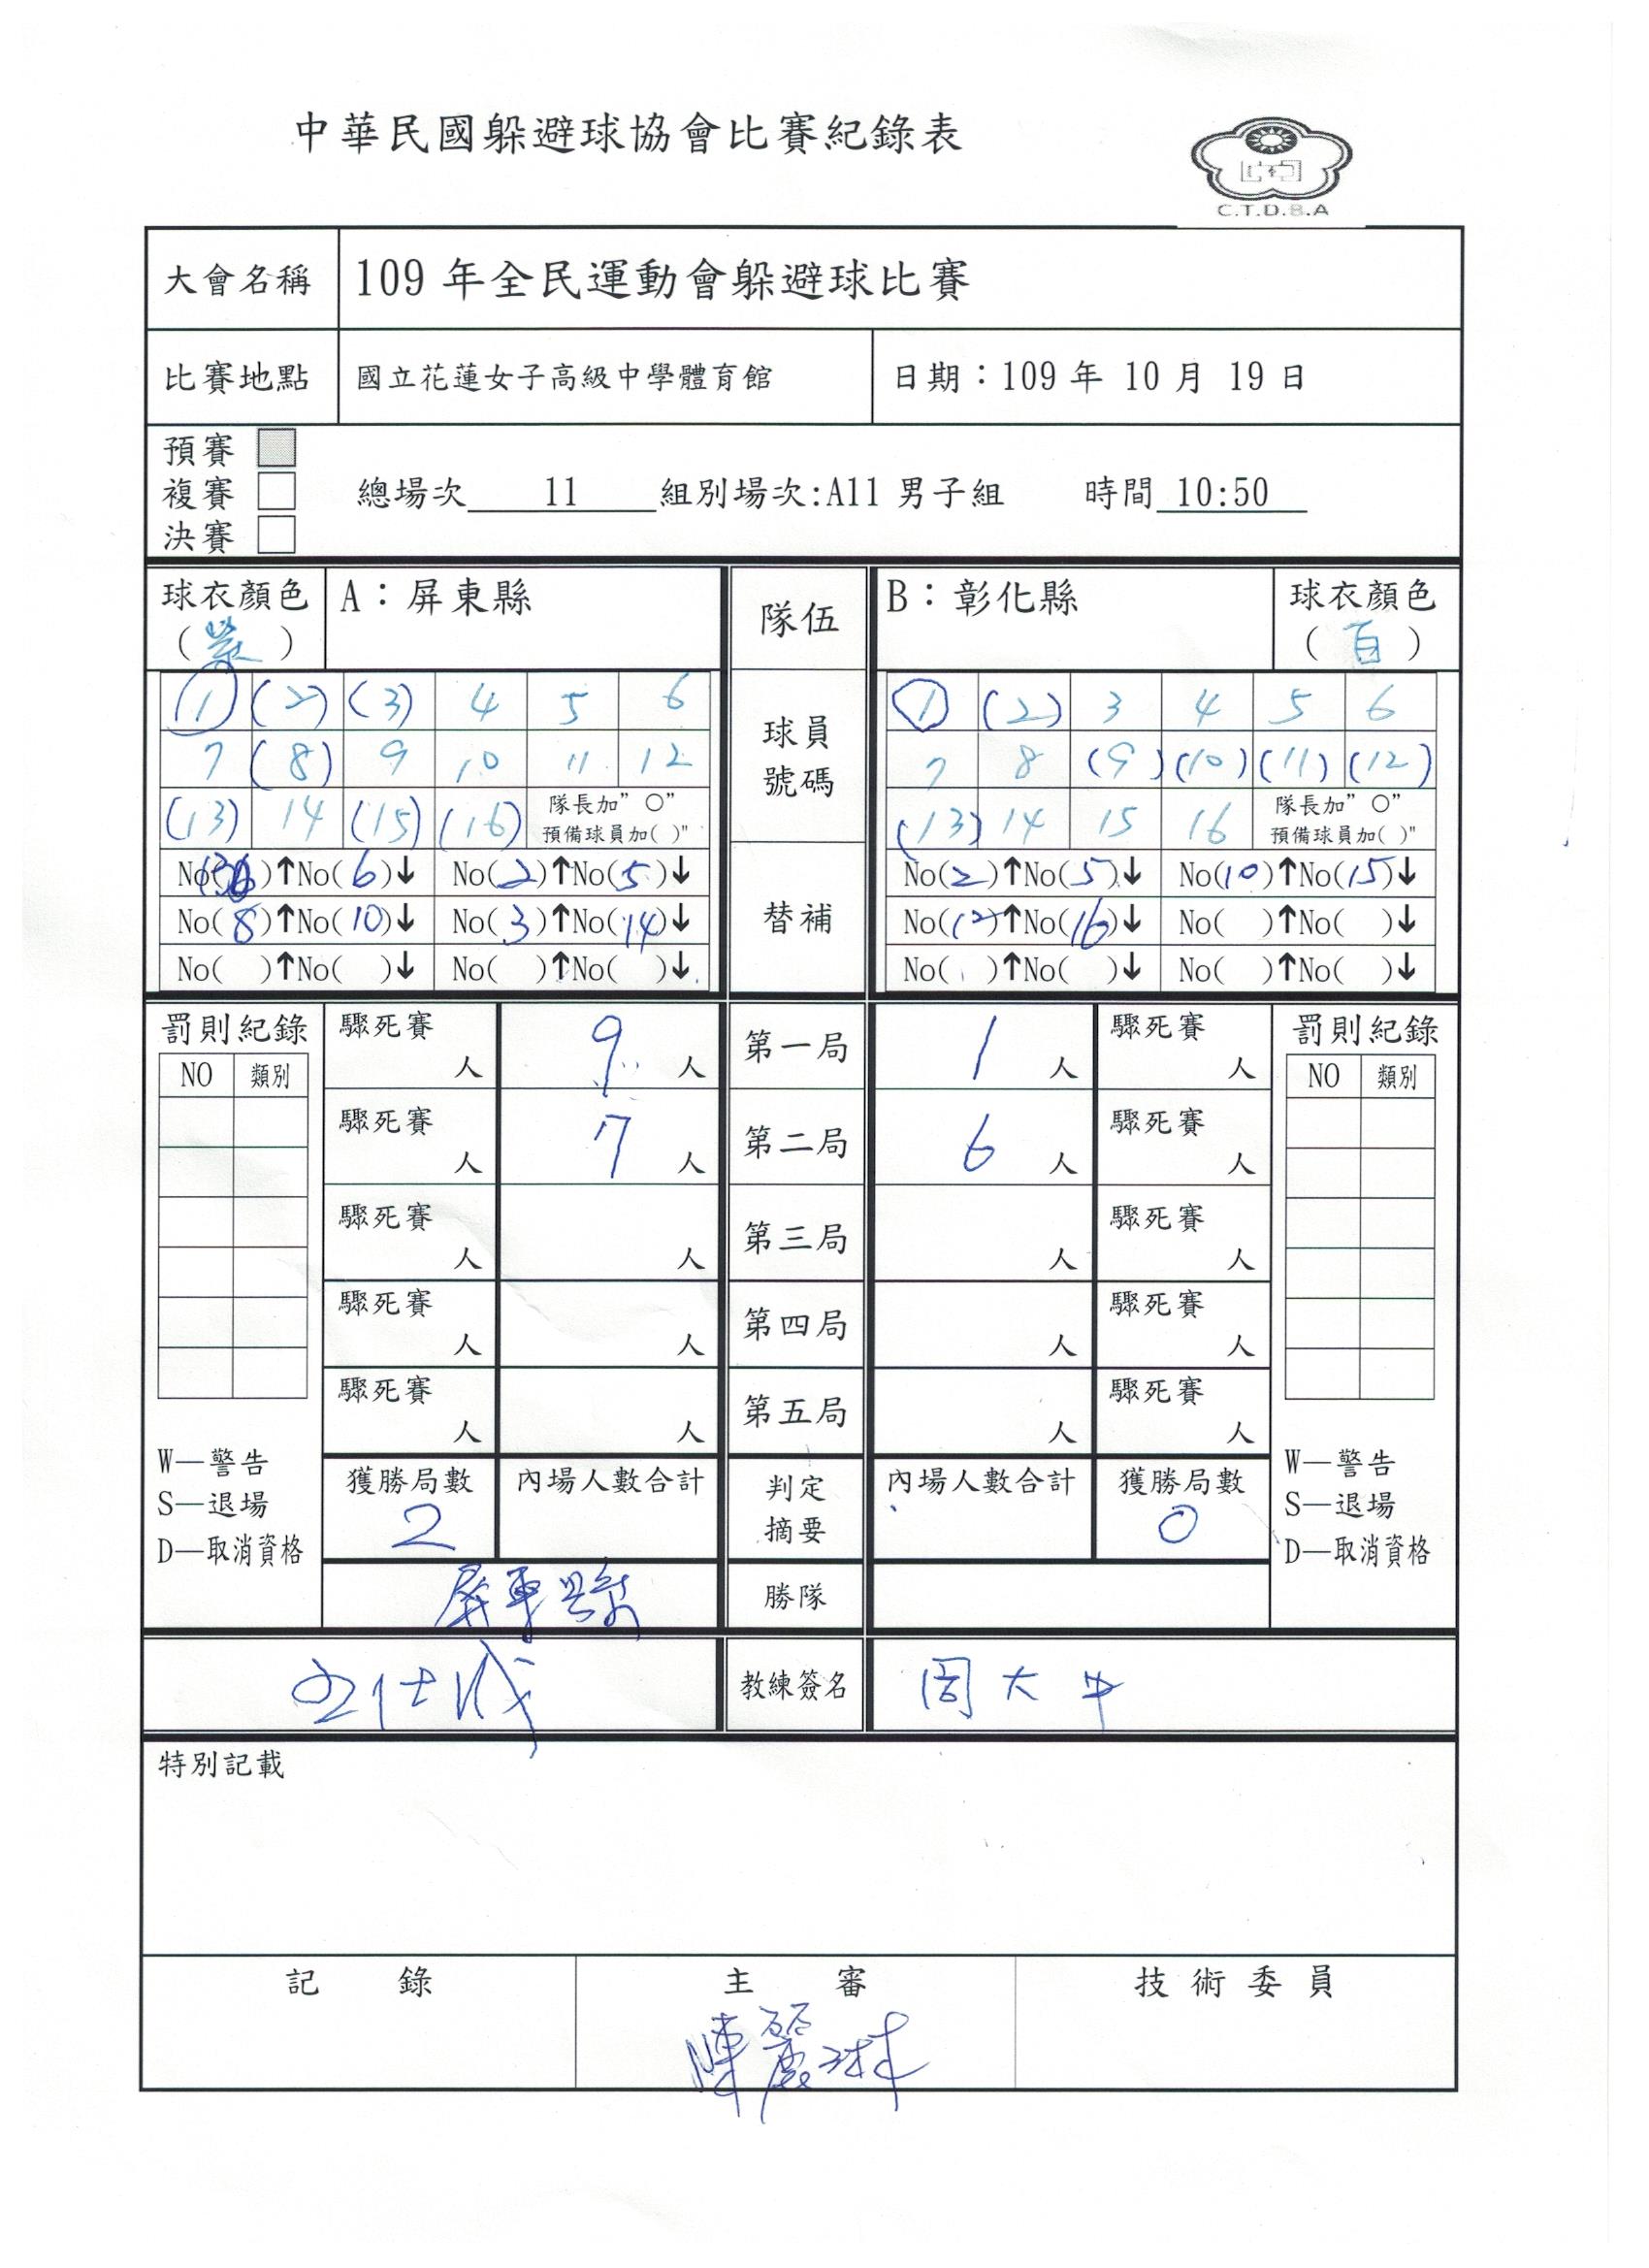 中華民國躲避球協會比賽紀錄表
C.T.D.B.A
大會名稱 109 年全民運動會躲避球比賽
比賽地點 國立花蓮女子高級中學體育館 日期：109 年 10 月 19 日
預賽
複賽
決賽
總場次 11 組別場次:A11 男子組 時間 10:50
球衣顏色 A：屏東縣 隊伍 B：彰化縣 球衣顏色
( ) (白)
(1) (2) (3) 4 5 6 球員 1 (2) 3 4 5 6
7 (8) 9 10 11 12 號碼 7 8 (9) (10) (11) (12)
(13) 14 (15) (16) 隊長加” ○” (13) 14 15 16 隊長加” ○”
預備球員加( )" 預備球員加( )"
No( )↑No(6)↓ No(2)↑No(5)↓ 替補 No(2)↑No(5)↓ No(10)↑No(15)↓
No(8)↑No(10)↓ No(3)↑No(14)↓ No(12)↑No(16)↓ No( )↑No( )↓
No( )↑No( )↓ No( )↑No( )↓ No( )↑No( )↓ No( )↑No( )↓
罰則紀錄 驟死賽 人 9 人 第一局 1 人 驟死賽 人 罰則紀錄
NO 類別 NO 類別
驟死賽 人 7 人 第二局 6 人 驟死賽 人
驟死賽 人 人 第三局 人 驟死賽 人
驟死賽 人 人 第四局 人 驟死賽 人
驟死賽 人 人 第五局 人 驟死賽 人
W—警告 W—警告
S—退場 S—退場
D—取消資格 D—取消資格
獲勝局數 內場人數合計 判定摘要 內場人數合計 獲勝局數
2 0
屏東縣 勝隊
教練簽名 周大中
特別記載
記 錄 主 審 技 術 委 員
陳麗琳